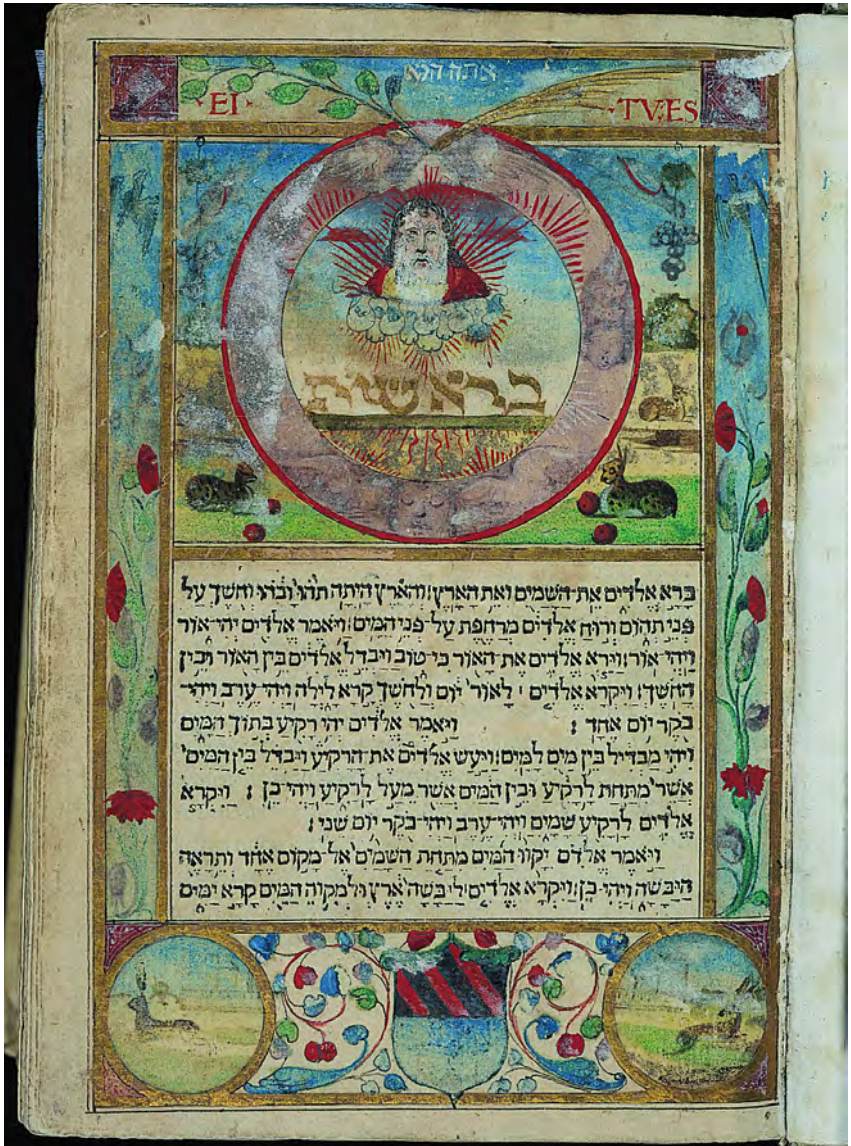 אתה הוא
·EI· ·TV·ES
בראשית
ברא אלדים את־השמים ואת הארץ׃ והארץ היתה תהו ובהו וחשך על
פני תהום ורוח אלדים מרחפת על־פני המים׃ ויאמר אלדים יהי־אור
ויהי־אור׃ וירא אלדים את־האור כי־טוב ויבדל אלדים בין האור ובין
החשך׃ ויקרא אלדים ׀ לאור יום ולחשך קרא לילה ויהי־ערב ויהי־
בקר יום אחד׃ ויאמר אלדים יהי רקיע בתוך המים
ויהי מבדיל בין מים למים׃ ויעש אלדים את־הרקיע ויבדל בין המים
אשר מתחת לרקיע ובין המים אשר מעל לרקיע ויהי־כן׃ ויקרא
אלדים לרקיע שמים ויהי־ערב ויהי־בקר יום שני׃
ויאמר אלדים יקוו המים מתחת השמים אל־מקום אחד ותראה
היבשה ויהי־כן׃ ויקרא אלדים ליבשה ארץ ולמקוה המים קרא ימים